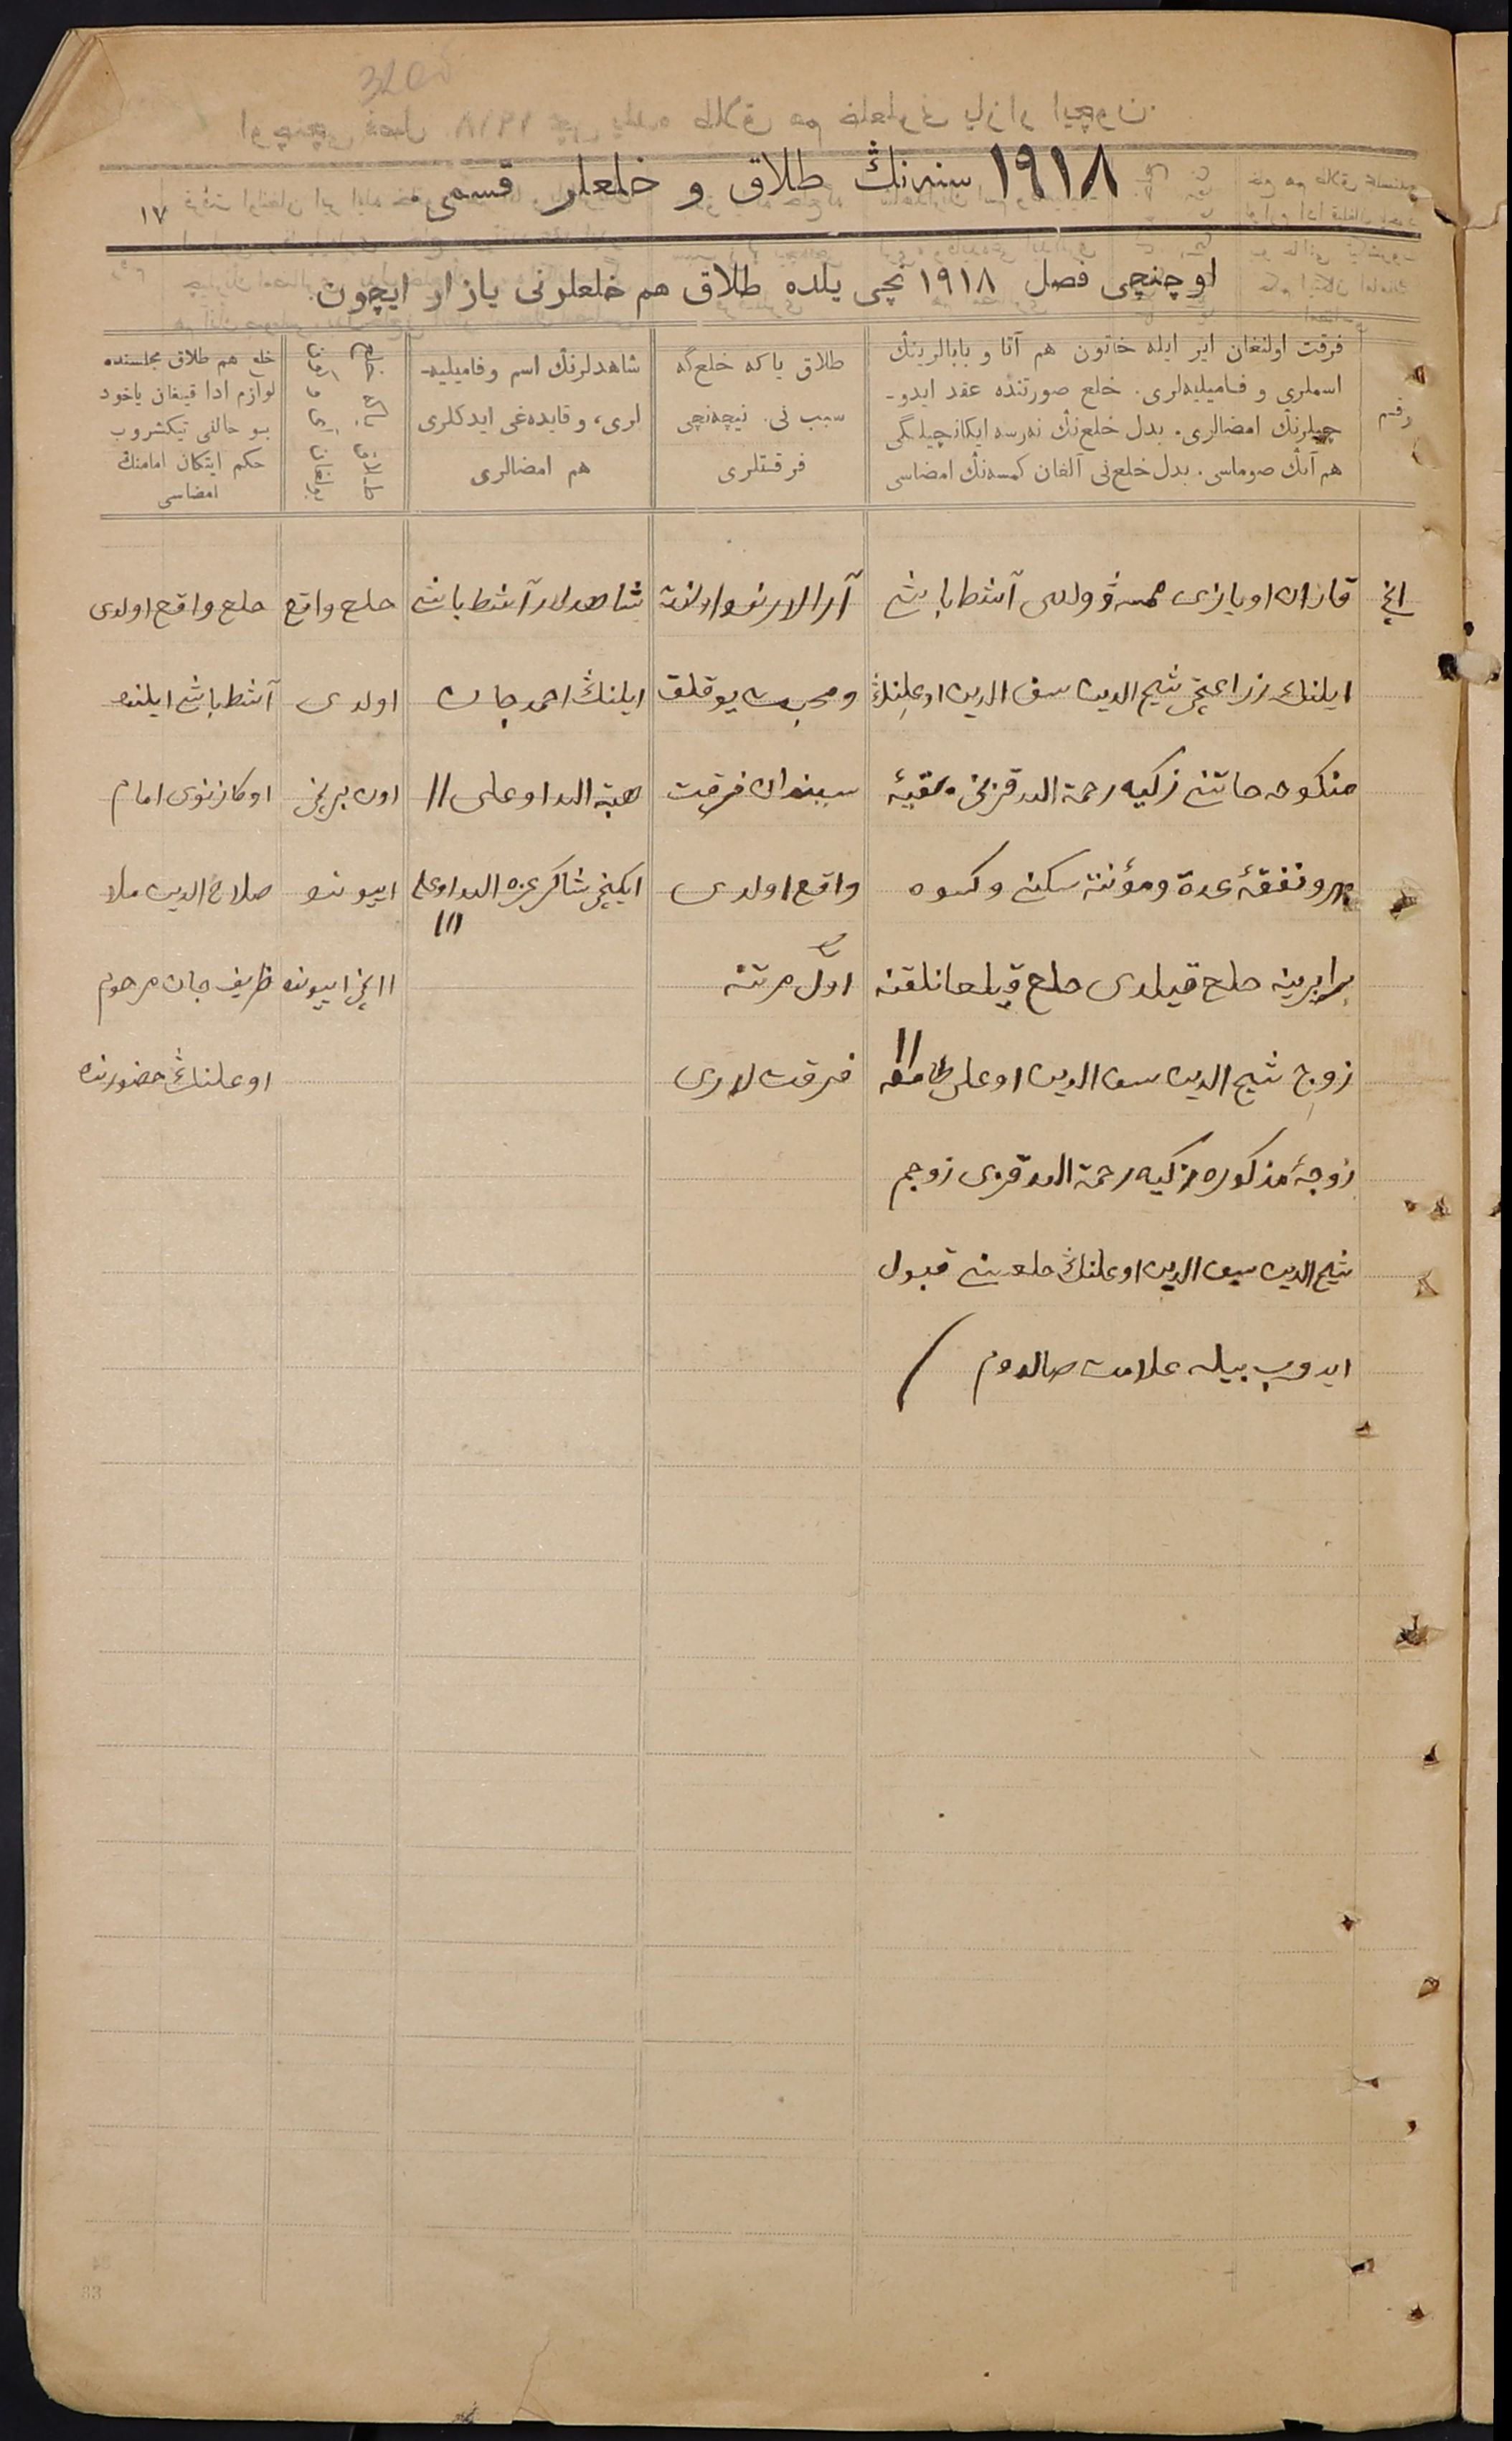 ١٩١٨ سنه‌نڭ طلاق و خلعلر قسمی
١٧
اوچنچی فصل ١٩١٨ نچی یلده طلاق هم خلعلرنی یازار ایچون.
رقم
فرقت اولنغان ایر ایله خاتون هم آتا و بابالرینڭ
اسملری و فامیلیه‌لری. خلع صورتنده عقد ایدو-
چیلرنڭ امضالری. بدل خلع‌نڭ نه‌رسه ایکانچیلگی
هم آنڭ صوماسی. بدل خلع‌نی آلغان کمسه‌نڭ امضاسی
طلاق یا که خلع‌گه
سبب نی. نیچه‌نچی
فرقتلری
شاهدلرنڭ اسم و فامیلیه-
لری، و قایده‌غی ایدکلری
هم امضالری
طلاق یا که خلع
بولغان آی و کون
خلع هم طلاق مجلسنده
لوازم ادا قیلغان یاخود
بو حالنی تیکشروب
حکم ایتکان امامنڭ
امضاسی
١نچی
قازان اویازی وولسی آشطاباش
ایلنڭ زراعتچی شیخ الدین سیف الدین اوغلنڭ
منکوحه خاتنی زکیه رحمة الله قزنی بقیهٔ
مهر و نفقهٔ عدة و مؤنة سکنی و کسوه
برابرینه خلع قیلدی خلع قیلغانلقنه
زوج شیخ الدین سیف الدین اوغلی طامغه ١١
زوجهٔ مذکوره زکیه رحمة الله قزی زوجم
شیخ الدین سیف الدین اوغلنڭ خلعینی قبول
ایدوب بیله علامت صالدوم /
آرالارنده الفت
و محبت یوقلق
سببندان فرقت
واقع اولدی
اوّل مرتبه
فرقت لاری
شاهدلار آشطاباش
ایلنڭ احمدجان
هبة الله اوغلی ١١
ایکنچی شاکر عزة الله اوغلی
١١١
خلع واقع
اولدی
اون برنچی
اییونده
١١نچی اییونده
خلع واقع اولدی
آشطاباش ایلنده
اوکازنوی امام
صلاح الدین ملا
ظریف جان مرحوم
اوغلنڭ حضورنده